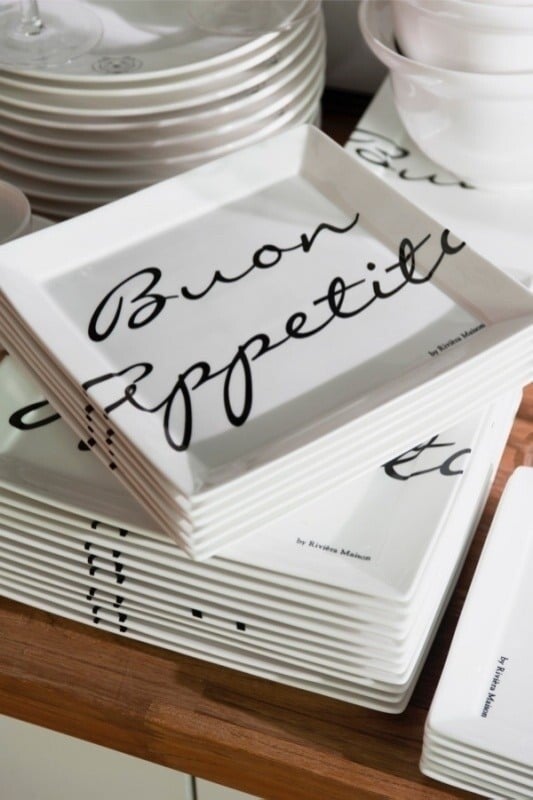 Buon
Appetito
by Rivièra Maison
to
by Rivièra Maison
by Rivièra Maison